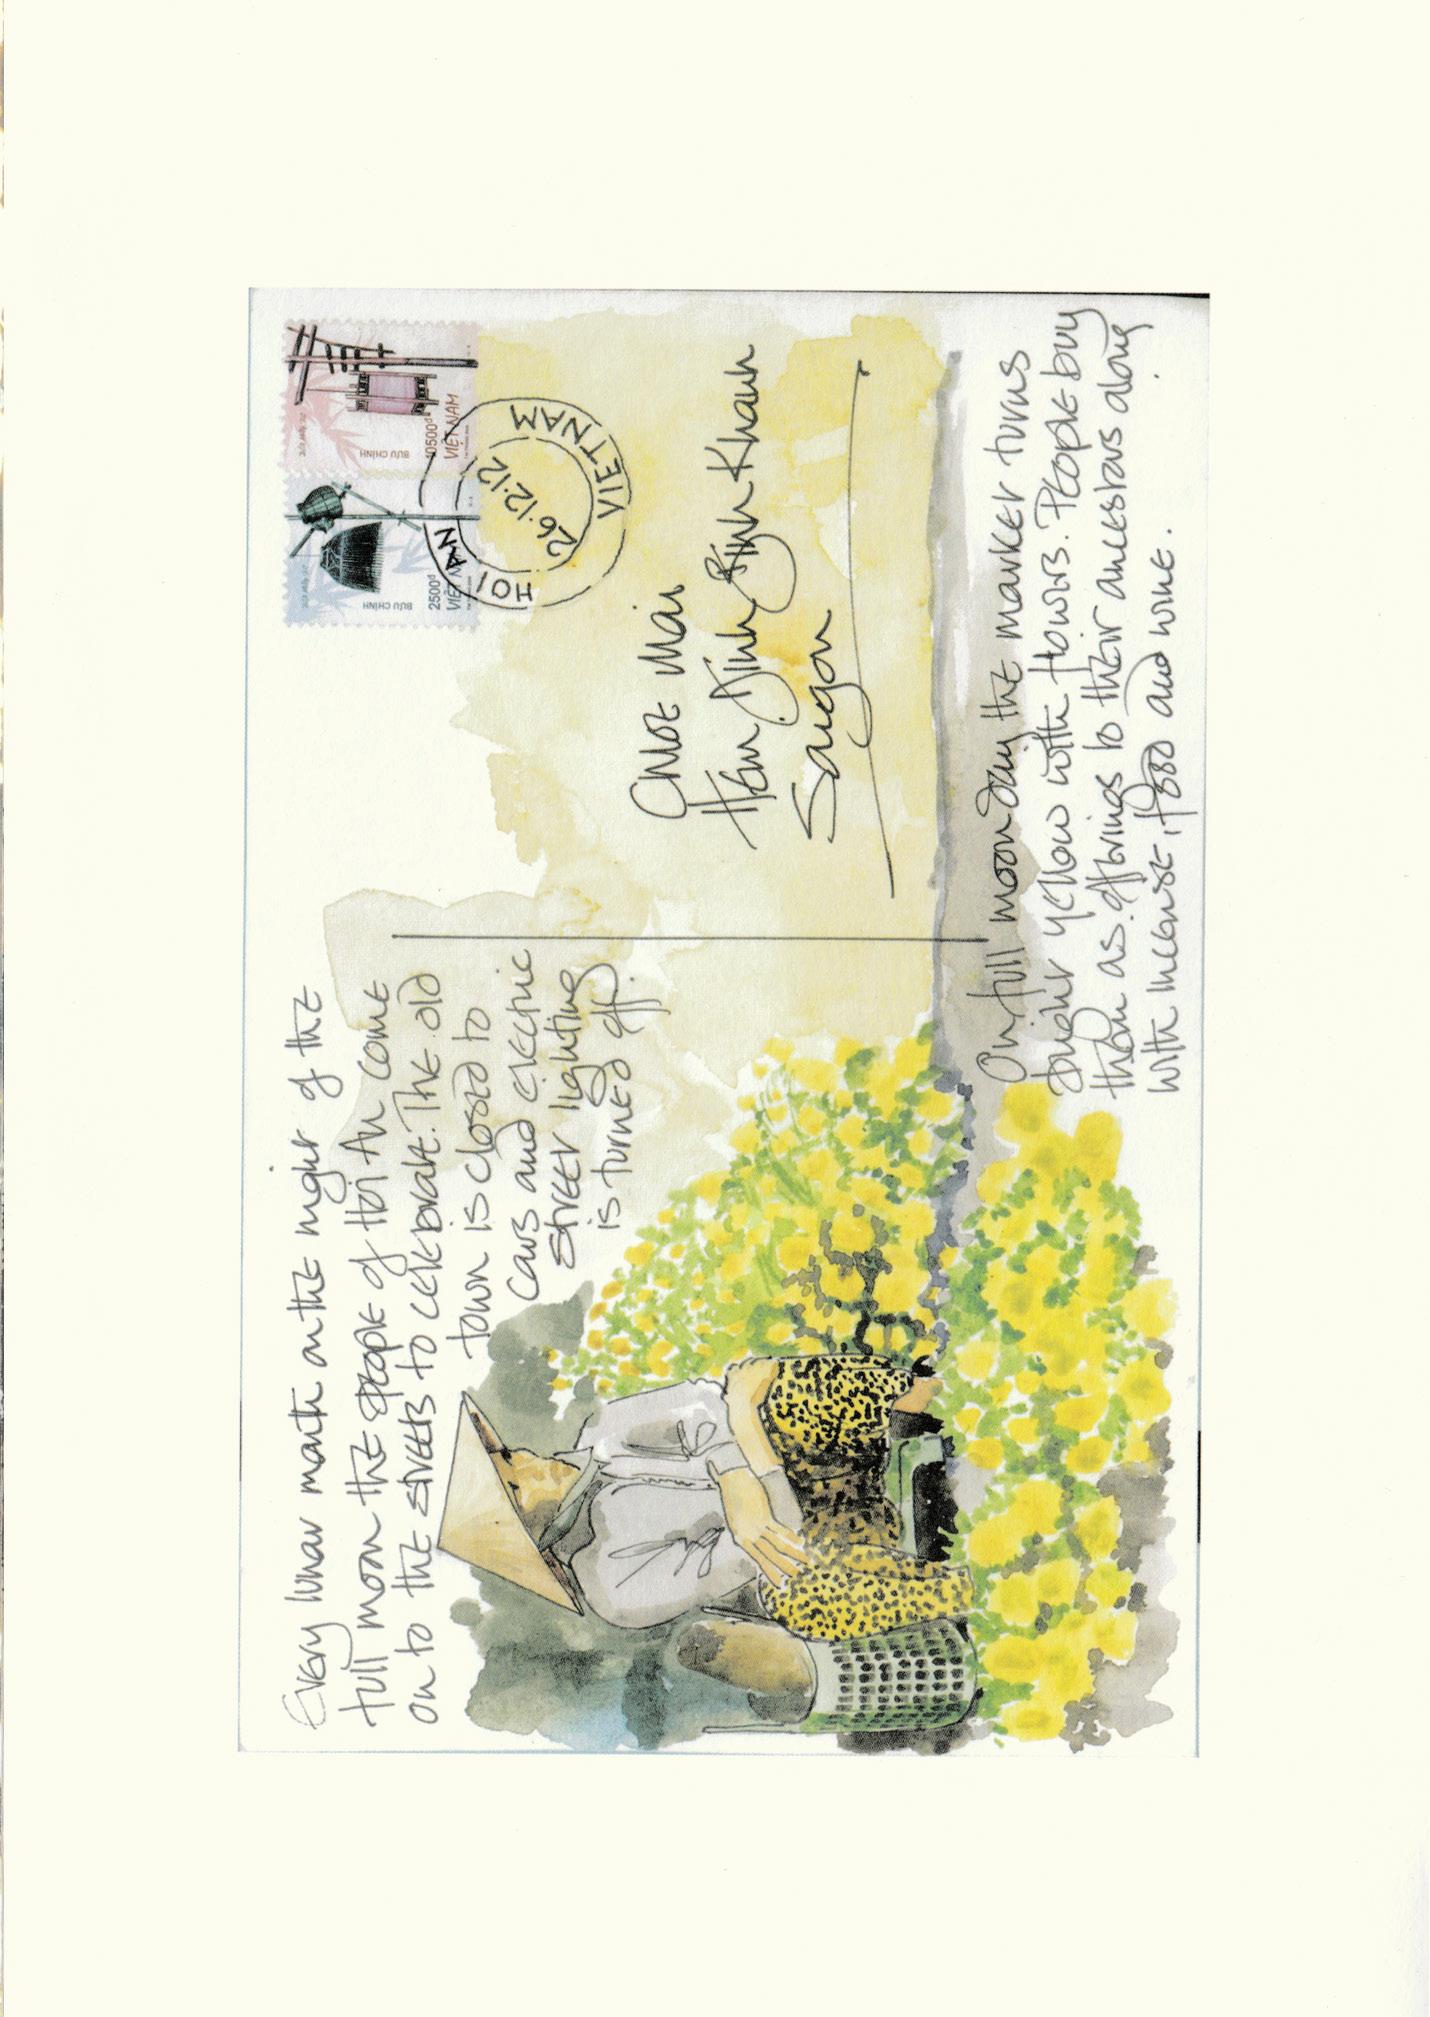 Every lunar month on the night of the
full moon the people of Hoi An come
on to the streets to celebrate. The old
town is closed to
cars and electric
street lighting
is turned off.
BƯU CHÍNH
2500đ
VIỆT NAM
BƯU CHÍNH
10500đ
VIỆT NAM
HOI AN
26·12·12
VIETNAM
Chloe Mai
Hem Dinh Binh Khanh
Saigon
On full moon day the market turns
bright yellow with flowers. People buy
them as offerings to their ancestors along
with incense, food and wine.